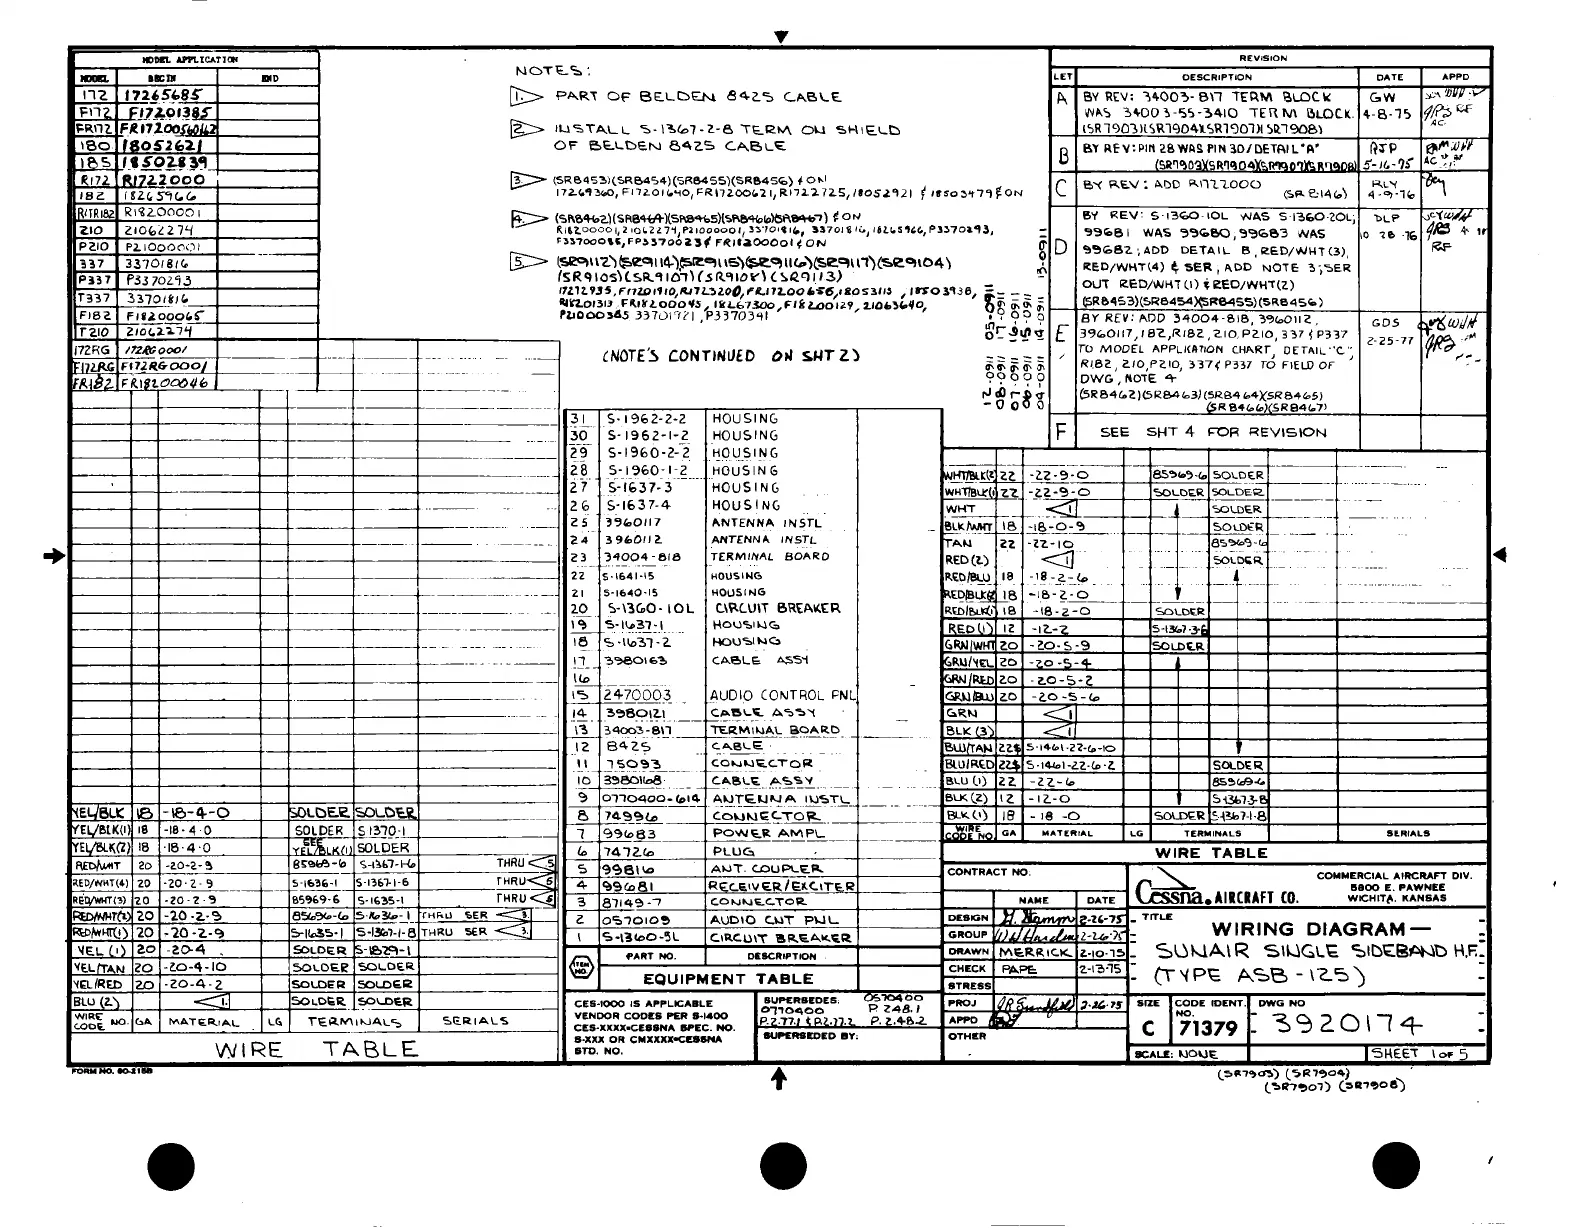 MODEL APPLICATION
MODEL BEGIN END
172 17265685
F172 F17201385
FR172
180 18052621
185 18502839
R172 R1722000
182 18265966
R/TR182 R18200001
210 21062274
P210 P21000001
337 33701816
P337 P3370293
T337 33701816
F182 F18200065
T210 21062274
172RG 172RG0001
F172RG F172RG0001
FR182 FR18200046
NOTES:
1. PART OF BELDEN 8425 CABLE
2. INSTALL S-1367-2-8 TERM ON SHIELD
OF BELDEN 8425 CABLE
3. (SR8453)(SR8454)(SR8455)(SR8456) & ON
17269360, F17201640, FR17200621, R1722725, 18052921 & 18503479 & ON
4. (SR8462)(SR8464)(SR8465)(SR8466)(SR8467) & ON
5. (SR9112)(SR9114)(SR9115)(SR9116)(SR9117)(SR9104)
(SR9105)(SR9107)(SR9108)(SR9113)
33701721, P3370341
(NOTE'S CONTINUED ON SHT 2)
REVISION
LET DESCRIPTION DATE APPD
A BY REV: 34003-817 TERM BLOCK GW
WAS 34003-55-3410 TERM BLOCK. 4-8-75
(SR7903)(SR7904)(SR7907)(SR7908)
B BY REV: PIN 28 WAS PIN 30/DETAIL "A" RJP
(SR7903)(SR7904)(SR7907)(SR7908) 5-16-75
C BY REV: ADD R1722000 RLY
(SR 8146) 4-9-76
D BY REV: S-1360-10L WAS S-1360-20L; DLP
99681 WAS 99680, 99683 WAS 10 28 -76
99682; ADD DETAIL B, RED/WHT(3),
RED/WHT(4) & SER, ADD NOTE 3; SER
OUT RED/WHT(1) & RED/WHT(2)
(SR8453)(SR8454)(SR8455)(SR8456)
E BY REV: ADD 34004-818, 3960112, GDS
3960117, 182, R182, 210, P210, 337 & P337 2-25-77
TO MODEL APPLICATION CHART, DETAIL "C",
R182, 210, P210, 337 & P337 TO FIELD OF
DWG, NOTE 4
(SR8462)(SR8463)(SR8464)(SR8465)
(SR8466)(SR8467)
F SEE SHT 4 FOR REVISION
31 S-1962-2-2 HOUSING
30 S-1962-1-2 HOUSING
29 S-1960-2-2 HOUSING
28 S-1960-1-2 HOUSING
27 S-1637-3 HOUSING
26 S-1637-4 HOUSING
25 3960117 ANTENNA INSTL
24 3960112 ANTENNA INSTL
23 34004-818 TERMINAL BOARD
22 S-1641-15 HOUSING
21 S-1640-15 HOUSING
20 S-1360-10L CIRCUIT BREAKER
19 S-1637-1 HOUSING
18 S-1637-2 HOUSING
17 3980163 CABLE ASSY
16
15 2470003 AUDIO CONTROL PNL
14 3980121 CABLE ASSY
13 34003-817 TERMINAL BOARD
12 8425 CABLE
11 75093 CONNECTOR
10 3980168 CABLE ASSY
9 0770400-614 ANTENNA INSTL
8 74996 CONNECTOR
7 99683 POWER AMPL
6 74726 PLUG
5 99816 ANT. COUPLER
4 99681 RECEIVER/EXCITER
3 87149-7 CONNECTOR
2 0570109 AUDIO CNT PNL
1 S-1360-5L CIRCUIT BREAKER
ITEM NO. PART NO. DESCRIPTION
EQUIPMENT TABLE
CES-1000 IS APPLICABLE
VENDOR CODES PER S-1400
CES-XXXX=CESSNA SPEC. NO.
S-XXX OR CMXXXX=CESSNA
STD. NO.
SUPERSEDES: 0570400
0770400 P 248.1
P.2.77.1 & P.2.77.2 P. 2.48.2
SUPERSEDED BY:
YEL/BLK 18 -18-4-0 SOLDER SOLDER
YEL/BLK(1) 18 -18-4-0 SOLDER S1370-1
YEL/BLK(2) 18 -18-4-0 SEE YEL/BLK(1) SOLDER
RED/WHT 20 -20-2-9 85969-6 S-1367-1-6 THRU 5
RED/WHT(4) 20 -20-2-9 S-1636-1 S-1367-1-6 THRU 5
RED/WHT(3) 20 -20-2-9 85969-6 S-1635-1 THRU 5
RED/WHT(2) 20 -20-2-9 85696-6 S-1636-1 THRU SER 3.
RED/WHT(1) 20 -20-2-9 S-1635-1 S-1367-1-8 THRU SER 3.
YEL (1) 20 -20-4 SOLDER S-1829-1
YEL/TAN 20 -20-4-10 SOLDER SOLDER
YEL/RED 20 -20-4-2 SOLDER SOLDER
BLU (2) 1. SOLDER SOLDER
WIRE CODE NO. GA MATERIAL LG TERMINALS SERIALS
WIRE TABLE
FORM NO. 80-215B
WHT/BLK(2) 22 -22-9-0 85969-6 SOLDER
WHT/BLK(1) 22 -22-9-0 SOLDER SOLDER
WHT 1 SOLDER
BLK/WHT 18 -18-0-9 SOLDER
TAN 22 -22-10 85969-6
RED (2) 1 SOLDER
RED/BLU 18 -18-2-6
RED/BLK(2) 18 -18-2-0
RED/BLK(1) 18 -18-2-0 SOLDER
RED (1) 12 -12-2 S-1367-3-8
GRN/WHT 20 -20-5-9 SOLDER
GRN/YEL 20 -20-5-4
GRN/RED 20 -20-5-2
GRN/BLU 20 -20-5-6
GRN 1
BLK (3) 1
BLU/TAN 22$ S-1461-22-6-10
BLU/RED 22$ S-1461-22-6-2 SOLDER
BLU (1) 22 -22-6 85969-6
BLK (2) 12 -12-0 S-1367-3-8
BLK (1) 18 -18-0 SOLDER S-1367-1-8
WIRE CODE NO. GA MATERIAL LG TERMINALS SERIALS
WIRE TABLE
CONTRACT NO.
NAME DATE
DESIGN 2-26-75
GROUP 2-26-75
DRAWN MERRICK 2-10-75
CHECK PAPE 2-13-75
STRESS
PROJ 2-26-75
APPD
OTHER
Cessna AIRCRAFT CO.
COMMERCIAL AIRCRAFT DIV.
5800 E. PAWNEE
WICHITA, KANSAS
TITLE
WIRING DIAGRAM—
SUNAIR SINGLE SIDEBAND H.F.
(TYPE ASB-125)
SIZE C CODE IDENT. NO. 71379 DWG NO 3920174
SCALE: NONE SHEET 1 OF 5
(SR7903) (SR7904)
(SR7907) (SR7908)